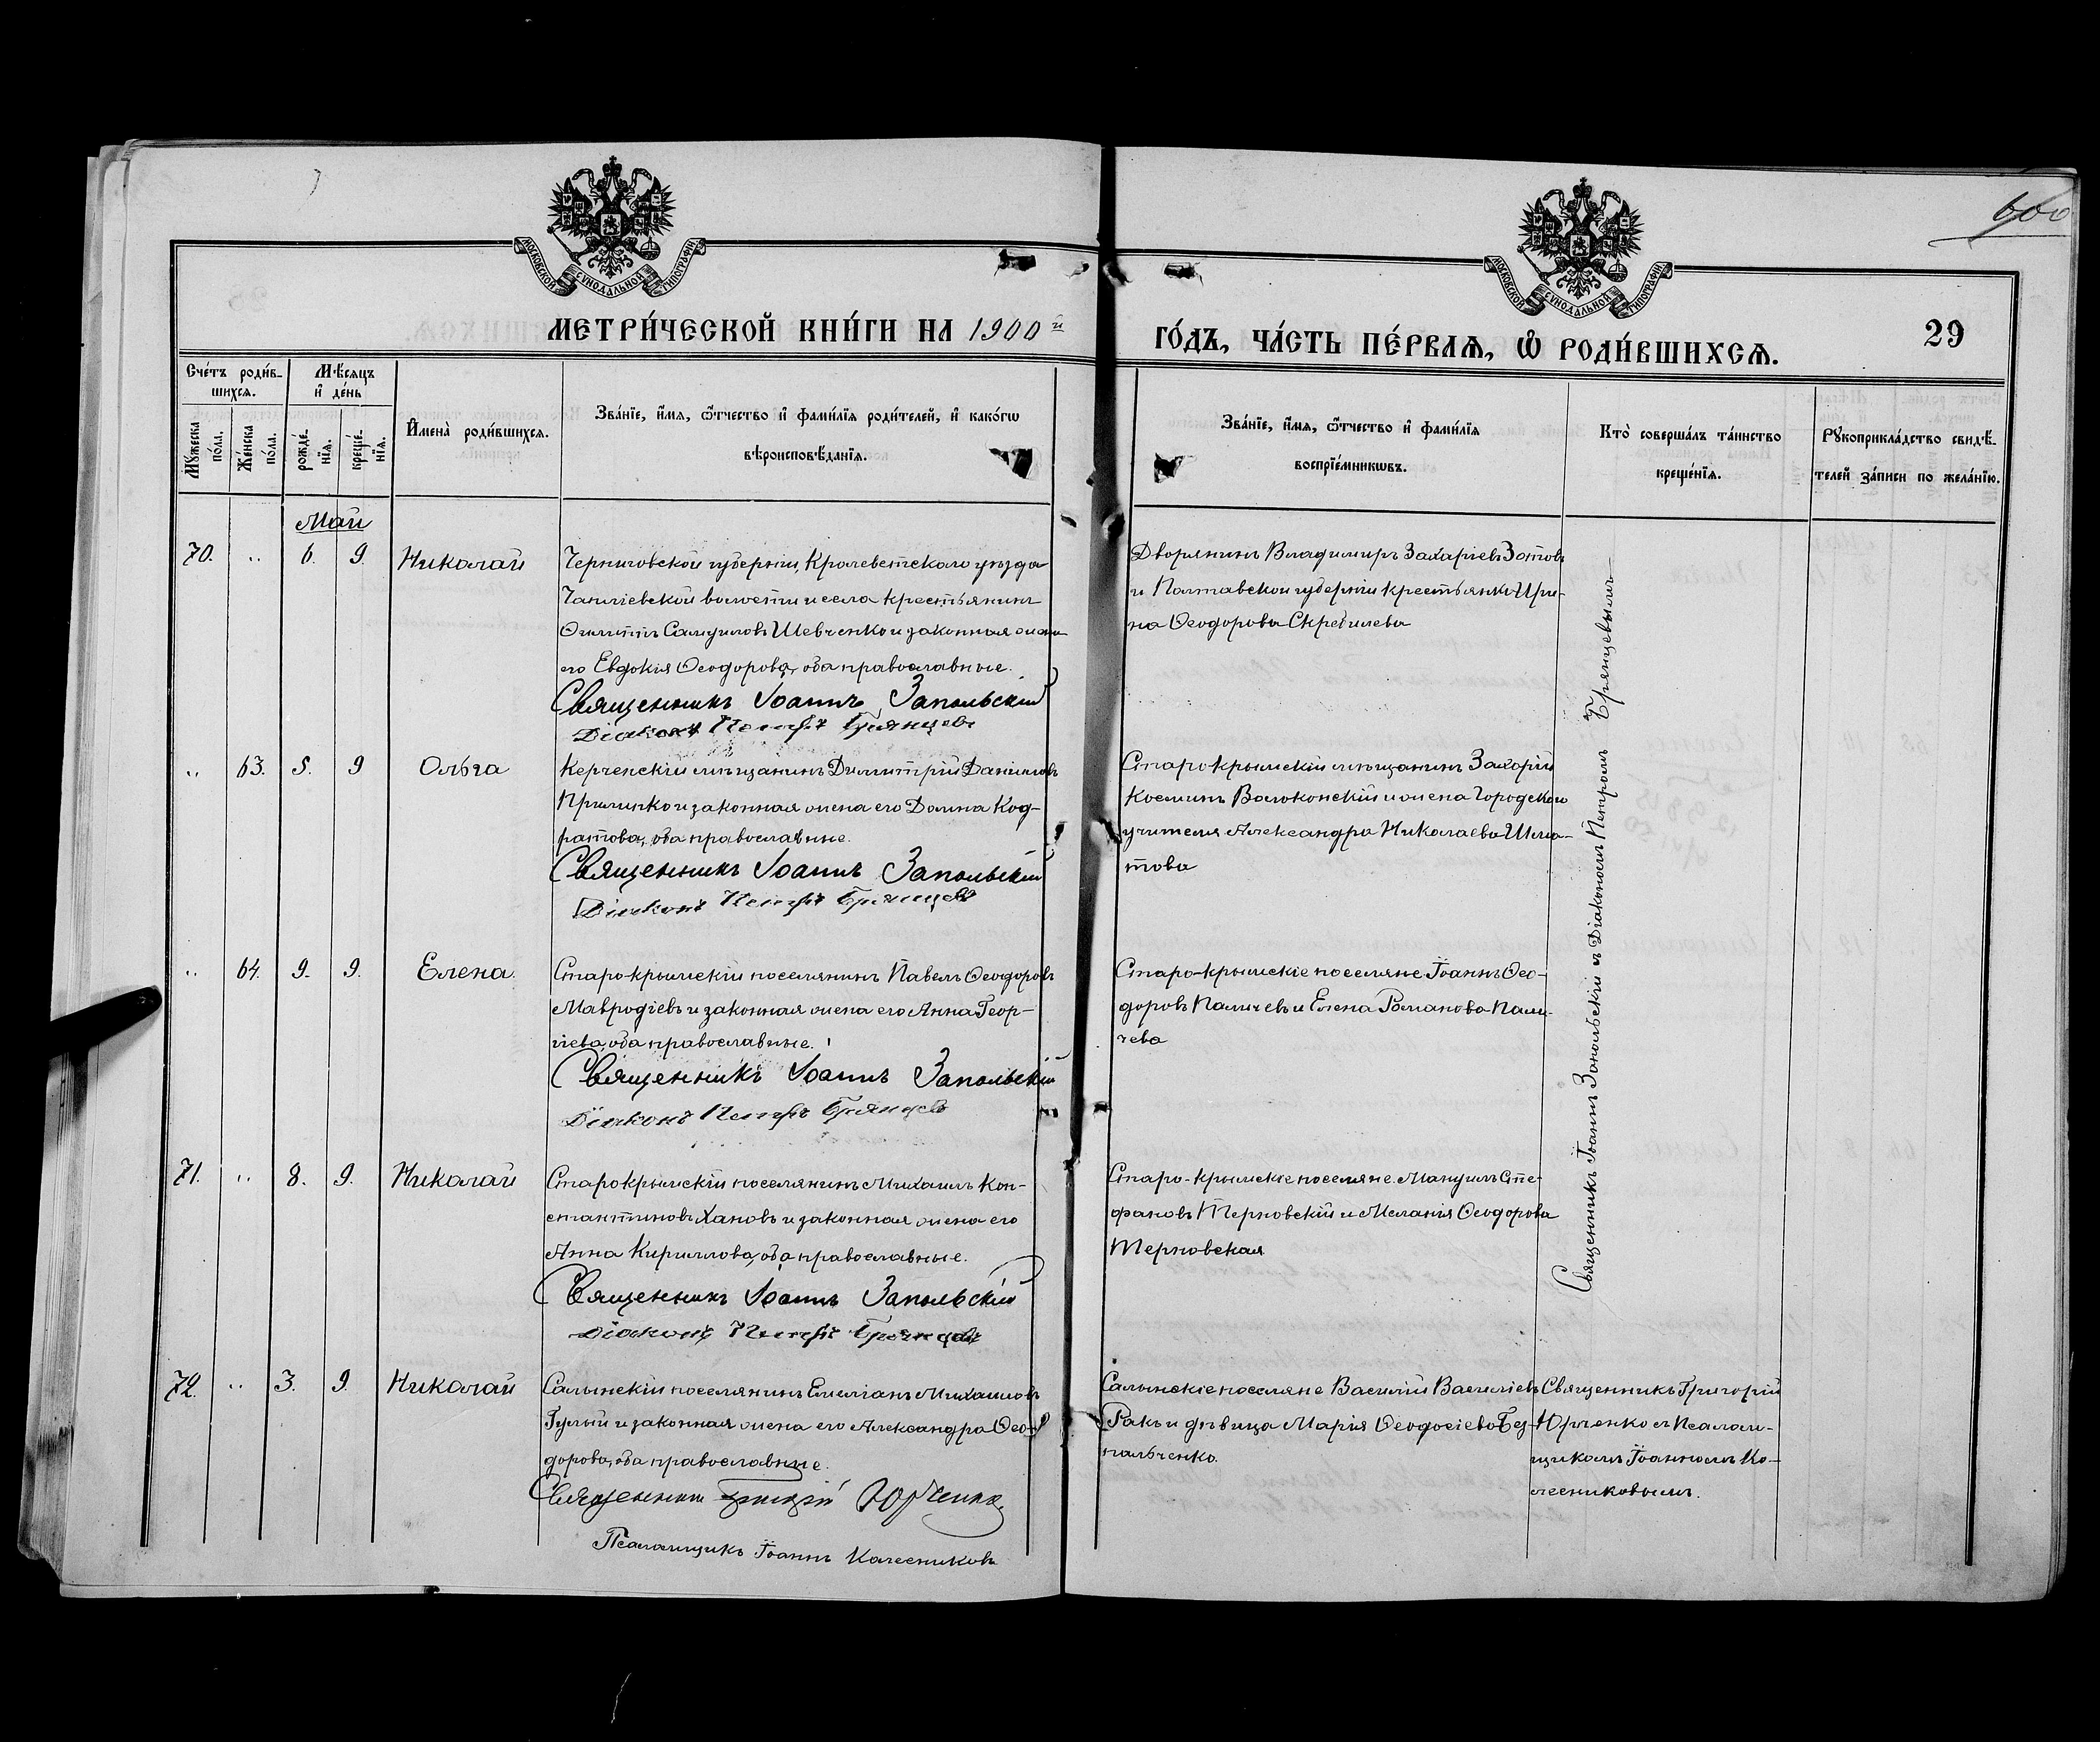 600
МОСКОВСКОЙ СѴНОДАЛЬНОЙ ТИПОГРАФІИ
МОСКОВСКОЙ СѴНОДАЛЬНОЙ ТИПОГРАФІИ
МЕТРИ́ЧЕСКОЙ КНИ́ГИ НА 1900й
ГО́ДЪ, ЧА́СТЬ ПЕ́РВАѦ, Ѡ҆ РОДИ́ВШИХСѦ.
29
Сче́тъ роди́в-
шихся.
Мꙋ́жеска по́ла.
Же́нска по́ла.
Мѣ́сяцъ
и҆ де́нь
рожде́-
нїѧ.
креще́-
нїѧ.
И҆мена̀ роди́вшихсѧ.
Зва́нїе, и҆́мѧ, ѻ҆́тчество и҆ фами́лїѧ роди́телей, и҆ како́гѡ
вѣроисповѣ́данїѧ.
Зва́нїе, и҆́мѧ, ѻ҆́тчество и҆ фами́лїѧ
воспрїе́мникѡвъ.
Кто̀ соверша́лъ та́инство
креще́нїѧ.
Рꙋкоприкла́дство свидѣ́-
телей за́писи по жела́нїю.
Май
70. " 6. 9. Николай
Черниговской губерніи, Кролеветскаго уѣзда
волости и села крестьянинъ
Филиппъ Самуиловъ Шевченко и законная жена
его Евдокія Ѳеодорова, оба православные.
Священникъ Іоаннъ Запольскій
Діаконъ Петръ Брянцевъ
Дворянинъ Владимиръ Захаріевъ Зотовъ
и Полтавской губерніи крестьянка Ири-
на Ѳеодорова Скребилева
Священникъ Іоаннъ Запольскій съ Діакономъ Петромъ Брянцевымъ
" 63. 5. 9 Ольга
Керченскій мѣщанинъ Димитрій Даніиловъ
и законная жена его Домна Код-
ратова, оба православные.
Священникъ Іоаннъ Запольскій
Діаконъ Петръ Брянцевъ
Старокрымскій мѣщанинъ Захарій
Косминъ Волоконскій и жена Городского
учителя Александра Николаева Шма-
това
" 64. 9. 9. Елена.
Старо-крымскій поселянинъ Павелъ Ѳеодоровъ
Мавродіевъ и законная жена его Анна Геор-
гіева, оба православные.
Священникъ Іоаннъ Запольскій
Діаконъ Петръ Брянцевъ
Старо-крымскіе поселяне Іоаннъ Ѳео-
доровъ Паличевъ и Елена Романова Пали-
чева
71. " 8. 9. Николай
Старокрымскій поселянинъ Михаилъ Кон-
стантиновъ Хановъ и законная жена его
Анна Кириллова, оба православные.
Священникъ Іоаннъ Запольскій
Діаконъ Петръ Брянцевъ
Старо-крымскіе поселяне Мануилъ Сте-
фановъ Терновскій и Меланія Ѳеодорова
Терновская
72. " 3. 9. Николай
Салынскій поселянинъ Емеліанъ Михаиловъ
Гулый и законная жена его Александра Ѳео-
дорова, оба православные.
Священникъ Григорій Юрченко.
Псаломщикъ Іоаннъ Колесниковъ
Салынскіе поселяне Василій Василіевъ
Ракъ и дѣвица Марія Ѳеодосіева Без-
пальченко.
Священникъ Григорій
Юрченко съ Псалом-
щикомъ Іоанномъ Ко-
лесниковымъ.